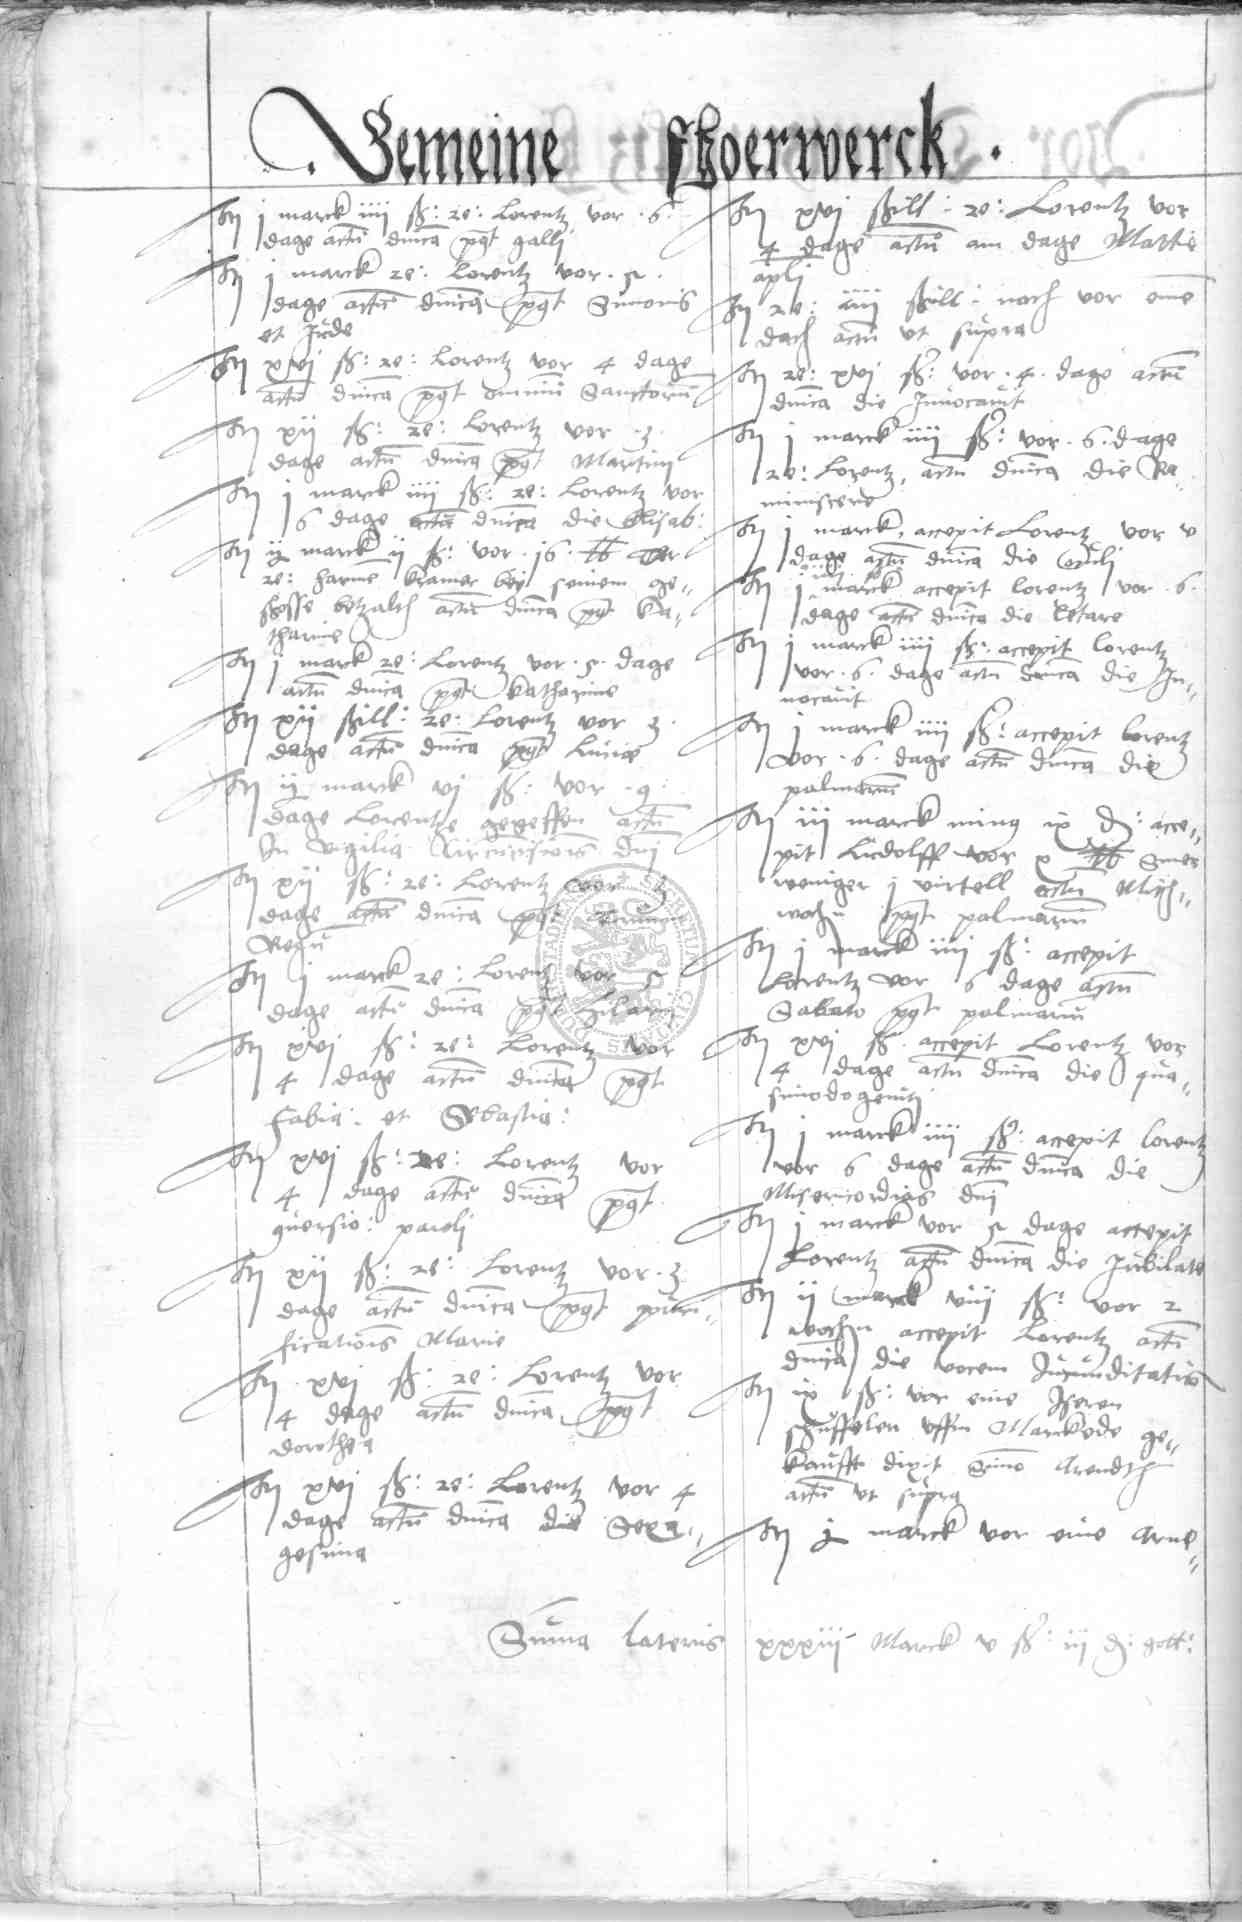 Gemeine Fhoerwerck .
It j marck iiij ß: re: Lorentz vor . 6 .
dage actũ dnĩca pqt galli
It j marck re: Lorentz vor . 5 .
dage actũ dnĩca pqt Simonis
et Jude
It xvj ß: re: Lorentz vor 4 dage
actũ dnĩca pqt omniũ Sanctorũ
It xij ß: re: Lorentz vor . 3 .
dage actũ dnĩca pqt Martini
It j marck iiij ß: re: Lorentz vor
6 dage actũ dnĩca die Elisab:
It ij marck ij ß: vor . 16 . lb
re: harmẽ kramer bey seinem ge„
schosse betzalth actũ dnĩca pqt ka„
tharine
It j marck re: Lorentz vor . 5 . dage
actũ dnĩca pqt katharine
It xij ßill: re: Lorentz vor 3 .
dage actũ dnĩca pqt Lucie
It ij marck vj ß: vor . 9 .
dage Lorentze gegessen actũ
In vigilia Circũcisiõis dnĩ
It xij ß: re: Lorentz vor 3
dage actũ dnĩca pqt Triũm
Regũ
It j marck re: Lorentz vor 5
dage actũ dnĩca pqt Hilarij
It xvj ß: re: Lorentz vor
4 dage actũ dnĩca pqt
Fabia: et Sebastia:
It xvj ß: re: Lorentz vor
4 dage actũ dnĩca pqt
quersio: pauli
It xij ß: re: Lorentz vor . 3
dage actũ dnĩca pqt puri„
ficatiõis Marie
It xvj ß: re: Lorentz vor
4 dage actũ dnĩca pqt
dorothea
It xvj ß: re: Lorentz vor 4
dage actũ dnĩca die Sexa„
gesima
It xvj ßill: re: Lorentz vor
4 dage actũ am dage Mattie
apli
It re: iiij ßill: noch vor eine
dach actũ vt supra
It re: xvj ß: vor . 4 . dage actũ
dnĩca die Inuocauit
It j marck iiij ß: vor . 6 . dage
re: Lorentz, actũ dnĩca die Re„
miniscere
It j marck, accepit Lorentz vor v
dage actũ dnĩca die oculi
It j marck accepit lorentz vor . 6 .
dage actũ dnĩca die letare
It j marck iiij ß: accepit lorentz
vor . 6 . dage actũ dnĩca die In„
uocauit
It j marck iiij ß: accepit lorentz
vor . 6 . dage actũ dnĩca die
palmarũ
It iij marck ming ix d: acce„
pit Ludolff vor x lb Smer
weniger j virtell actũ Mith„
wochen pqt palmarũ
It j marck iiij ß: accepit
Lorentz vor 6 dage actũ
Sabato pqt palmarũ
It xvj ß. accepit Lorentz vor
4 dage actũ dnĩca die qua„
simodogeniti
It j marck iiij ß: accepit lorentz
vor 6 dage actũ dnĩca die
Misericordias dnĩ
It j marck vor 5 dage accepit
Lorentz actũ dnĩca die Jubilate
It ij marck viij ß: vor 2
wochen accepit Lorentz actũ
dnĩca die vocem Jucunditatis
It ix ß: vor eine Iseren
schuffelen vffm Marckede ge„
kaufft dixit Simõ Arendth
actũ vt supra
It marck vor eine Arne„
Sũma lateris xxxiij Marck v ß: iij d: gott: